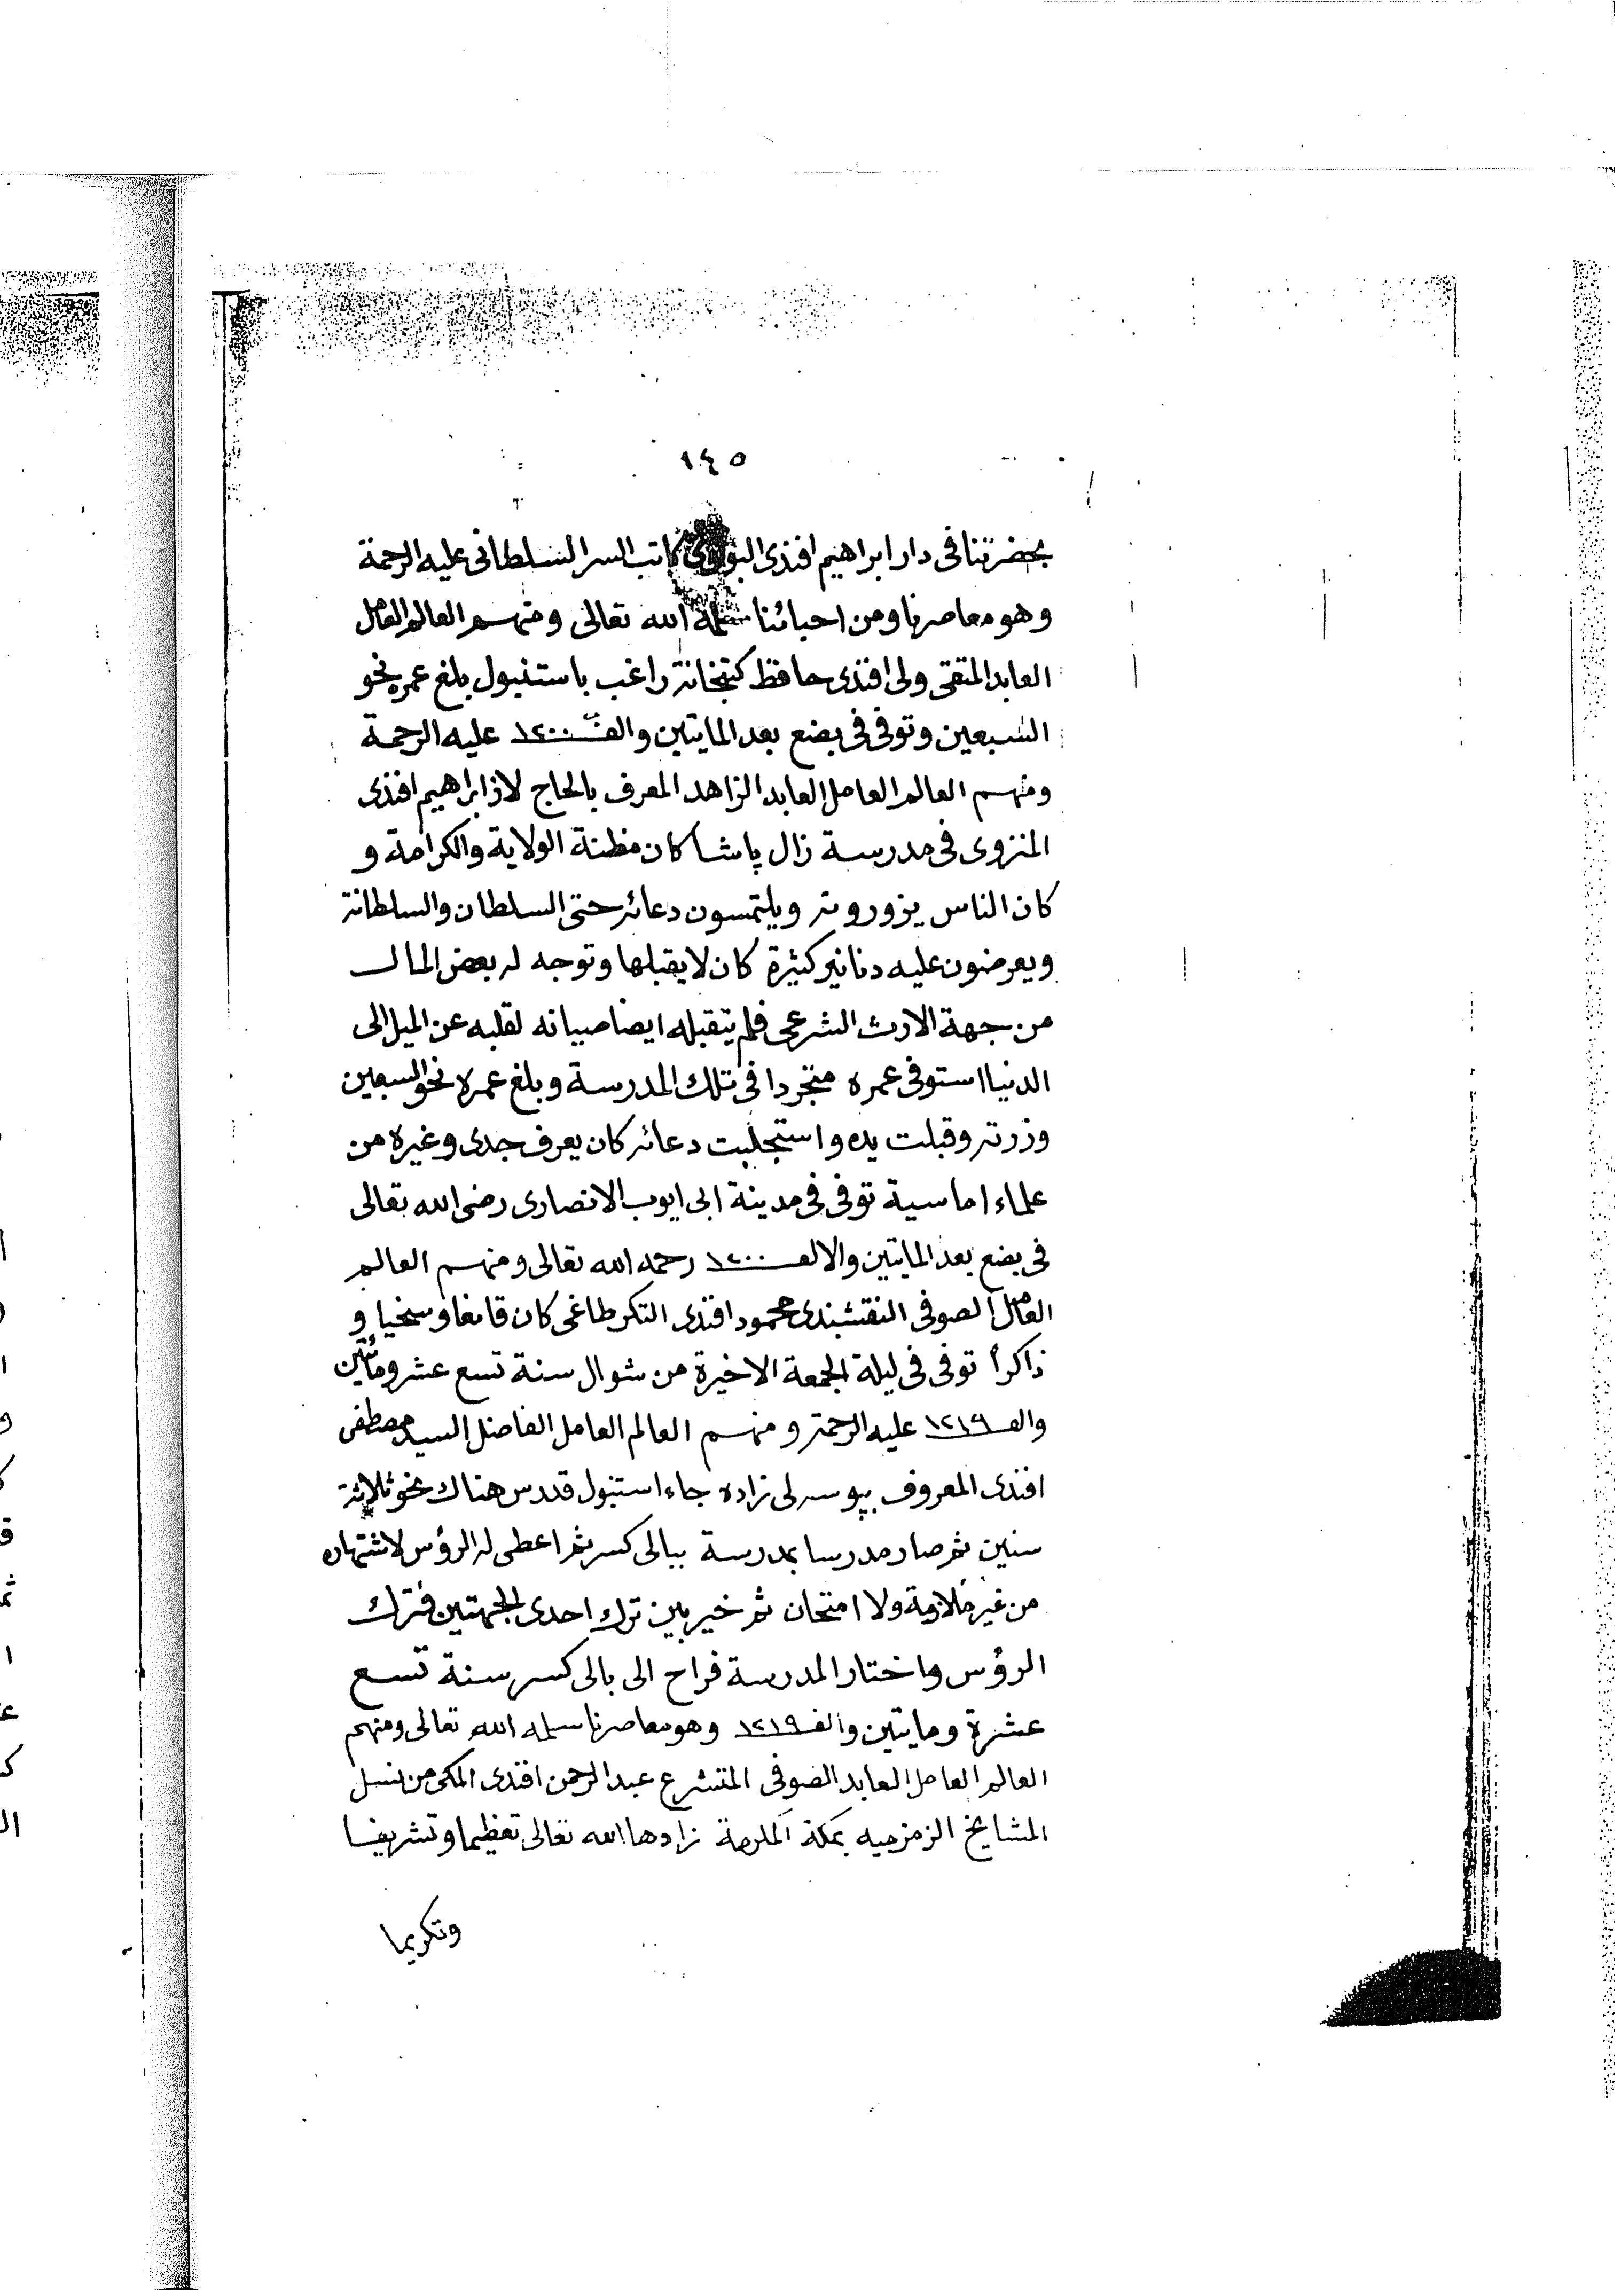 ١٤٥
بحضرتنا فى دار ابراهيم افندى كاتب السر السلطانى عليه الرحمة
وهو معاصرنا ومن احبائنا سلمه الله تعالى ومنهم العالم العامل
العابد المتقى ولى افندى حافظ كتبخانة راغب باستنبول بلغ عمره نحو
السبعين وتوفى فى بضع بعد المايتين والف ١٢٠٠ عليه الرحمة
ومنهم العالم العامل العابد الزاهد المعرف بالحاج لاز ابراهيم افندى
المنزوى فى مدرسة زال پاشا كان مظنة الولاية والكرامة و
كان الناس يزورونه ويلتمسون دعائه حتى السلطان والسلطانة
ويعرضون عليه دنانير كثيرة كان لا يقبلها وتوجه له بعض المال
من جهة الارث الشرعى فلم يتقبله ايضا صيانه لقلبه عن الميل الى
الدنيا استوفى عمره متجردا فى تلك المدرسة وبلغ عمره نحو السبعين
وزرته وقبلت يده واستجلبت دعائه كان يعرف جدى وغيره من
علماء اماسية توفى فى مدينة ابى ايوب الانصارى رضى الله تعالى
فى بضع بعد المايتين والالف ١٢٠٠ رحمه الله تعالى ومنهم العالم
العامل الصوفى النقشبندى محمود افندى التكرطاغى كان قانعا وسخيا و
ذاكراً توفى فى ليلة الجمعة الاخيرة من شوال سنة تسع عشر ومائتين
والف ١٢١٩ عليه الرحمة ومنهم العالم العامل الفاضل السيد مصطفى
افندى المعروف ببوسه لى زاده جاء استنبول قدرس هناك نحو ثلاثة
سنين ثم صار مدرسا بمدرسة ببالى كسر ثم اعطى له الرؤس لاشتهاره
من غير ملازمة ولا امتحان ثم خير بين ترك احدى الجهتين فترك
الرؤس واختار المدرسة فراح الى بالى كسر سنة تسع
عشرة ومايتين والف ١٢١٩ وهو معاصرنا سلمه الله تعالى ومنهم
العالم العامل العابد الصوفى المتشرع عبد الرحمن افندى المكى من نسل
المشايخ الزمزميه بمكة المكرمة زادها الله تعالى تعظيما وتشريفا
وتكريما